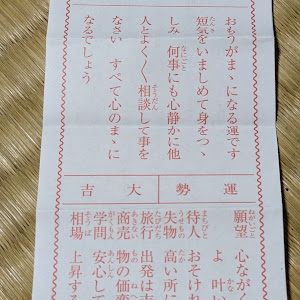 おもうがまゝになる運です
短気をいましめて身をつゝ
しみ 何事にも心静かに他
人とよく〳〵相談して事を
なさい すべて心のまゝに
なるでしょう
運勢
大吉
願望 心なが
よ 叶い
待人 おそけれ
失物 高い所に
旅行 出発は吉
商売 物の価変
学問 安心して
相場 上昇する